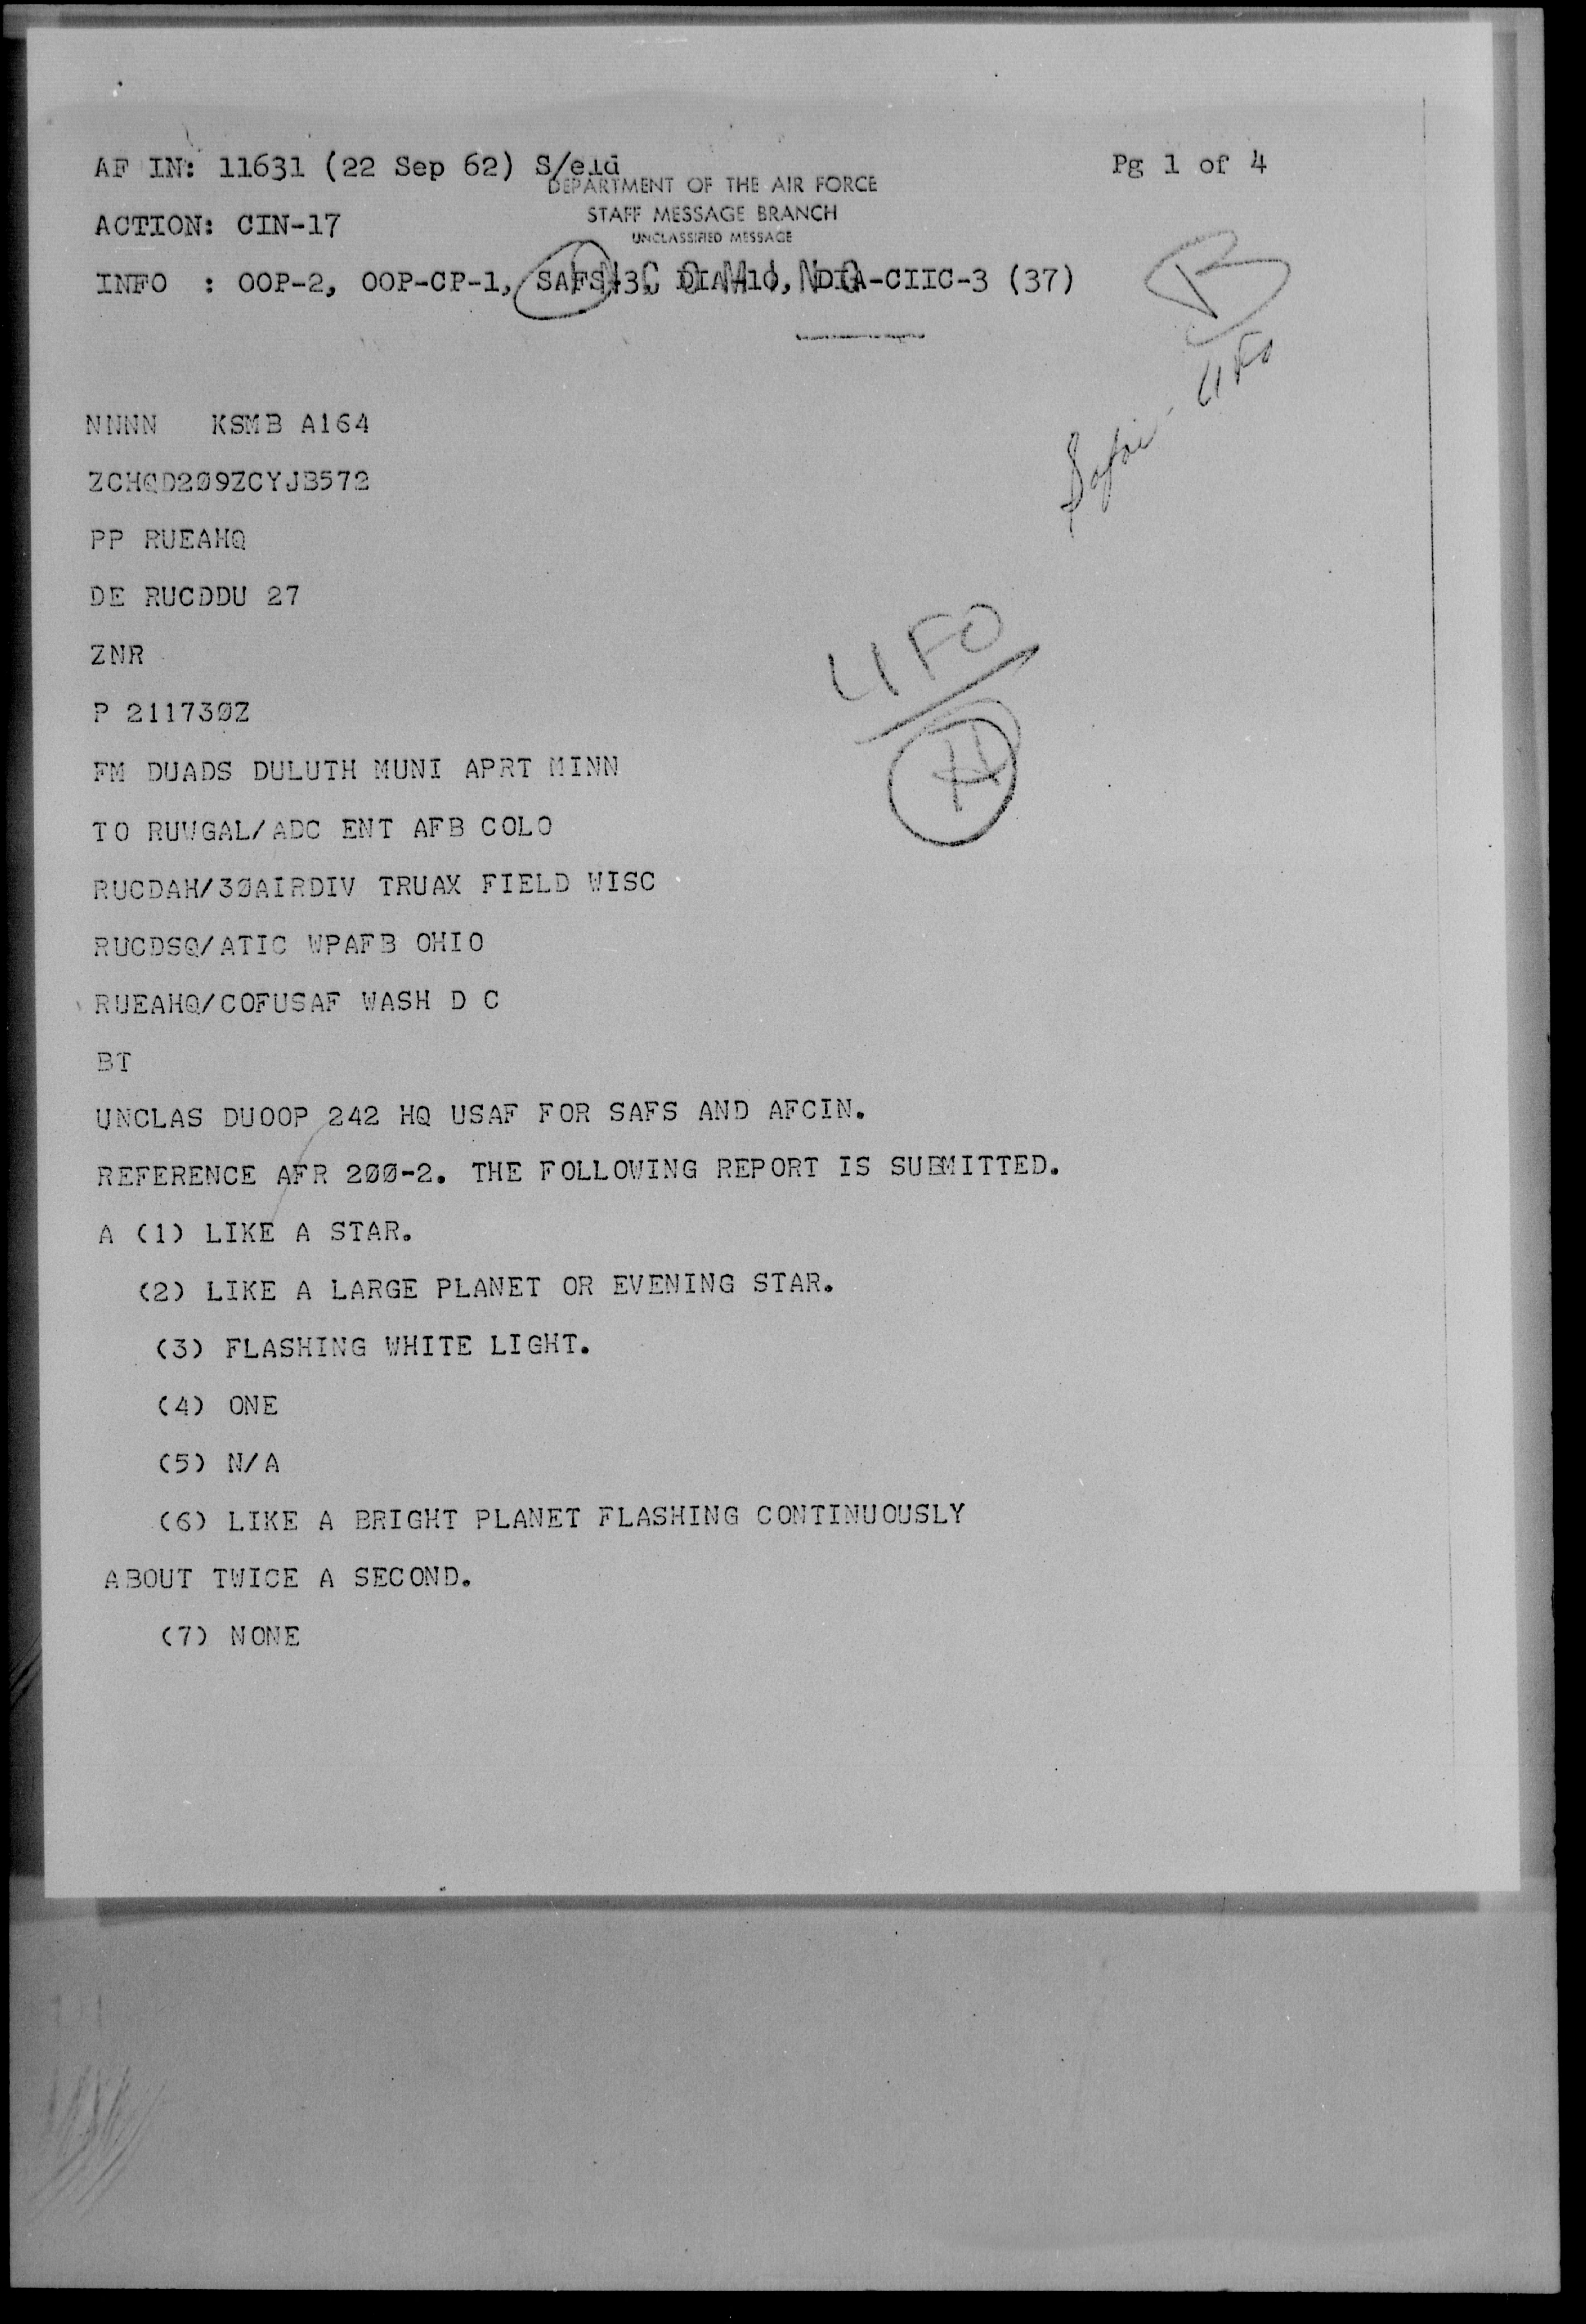 AF IN: 11631 (22 Sep 62) S/eld
Pg 1 of 4
DEPARTMENT OF THE AIR FORCE
STAFF MESSAGE BRANCH
UNCLASSIFIED MESSAGE
ACTION: CIN-17
INCOMING
INFO : OOP-2, OOP-CP-1, SAFS-3, DIA-10, DIA-CIIC-3 (37)
UFO
NNNN KSMB A164
ZCHQD2Ø9ZCYJB572
PP RUEAHQ
DE RUCDDU 27
ZNR
UFO
P 21173ØZ
FM DUADS DULUTH MUNI APRT MINN
TO RUWGAL/ADC ENT AFB COLO
RUCDAH/3ØAIRDIV TRUAX FIELD WISC
RUCDSQ/ATIC WPAFB OHIO
RUEAHQ/COFUSAF WASH D C
BT
UNCLAS DUOOP 242 HQ USAF FOR SAFS AND AFCIN.
REFERENCE AFR 2ØØ-2. THE FOLLOWING REPORT IS SUBMITTED.
A (1) LIKE A STAR.
(2) LIKE A LARGE PLANET OR EVENING STAR.
(3) FLASHING WHITE LIGHT.
(4) ONE
(5) N/A
(6) LIKE A BRIGHT PLANET FLASHING CONTINUOUSLY
ABOUT TWICE A SECOND.
(7) NONE